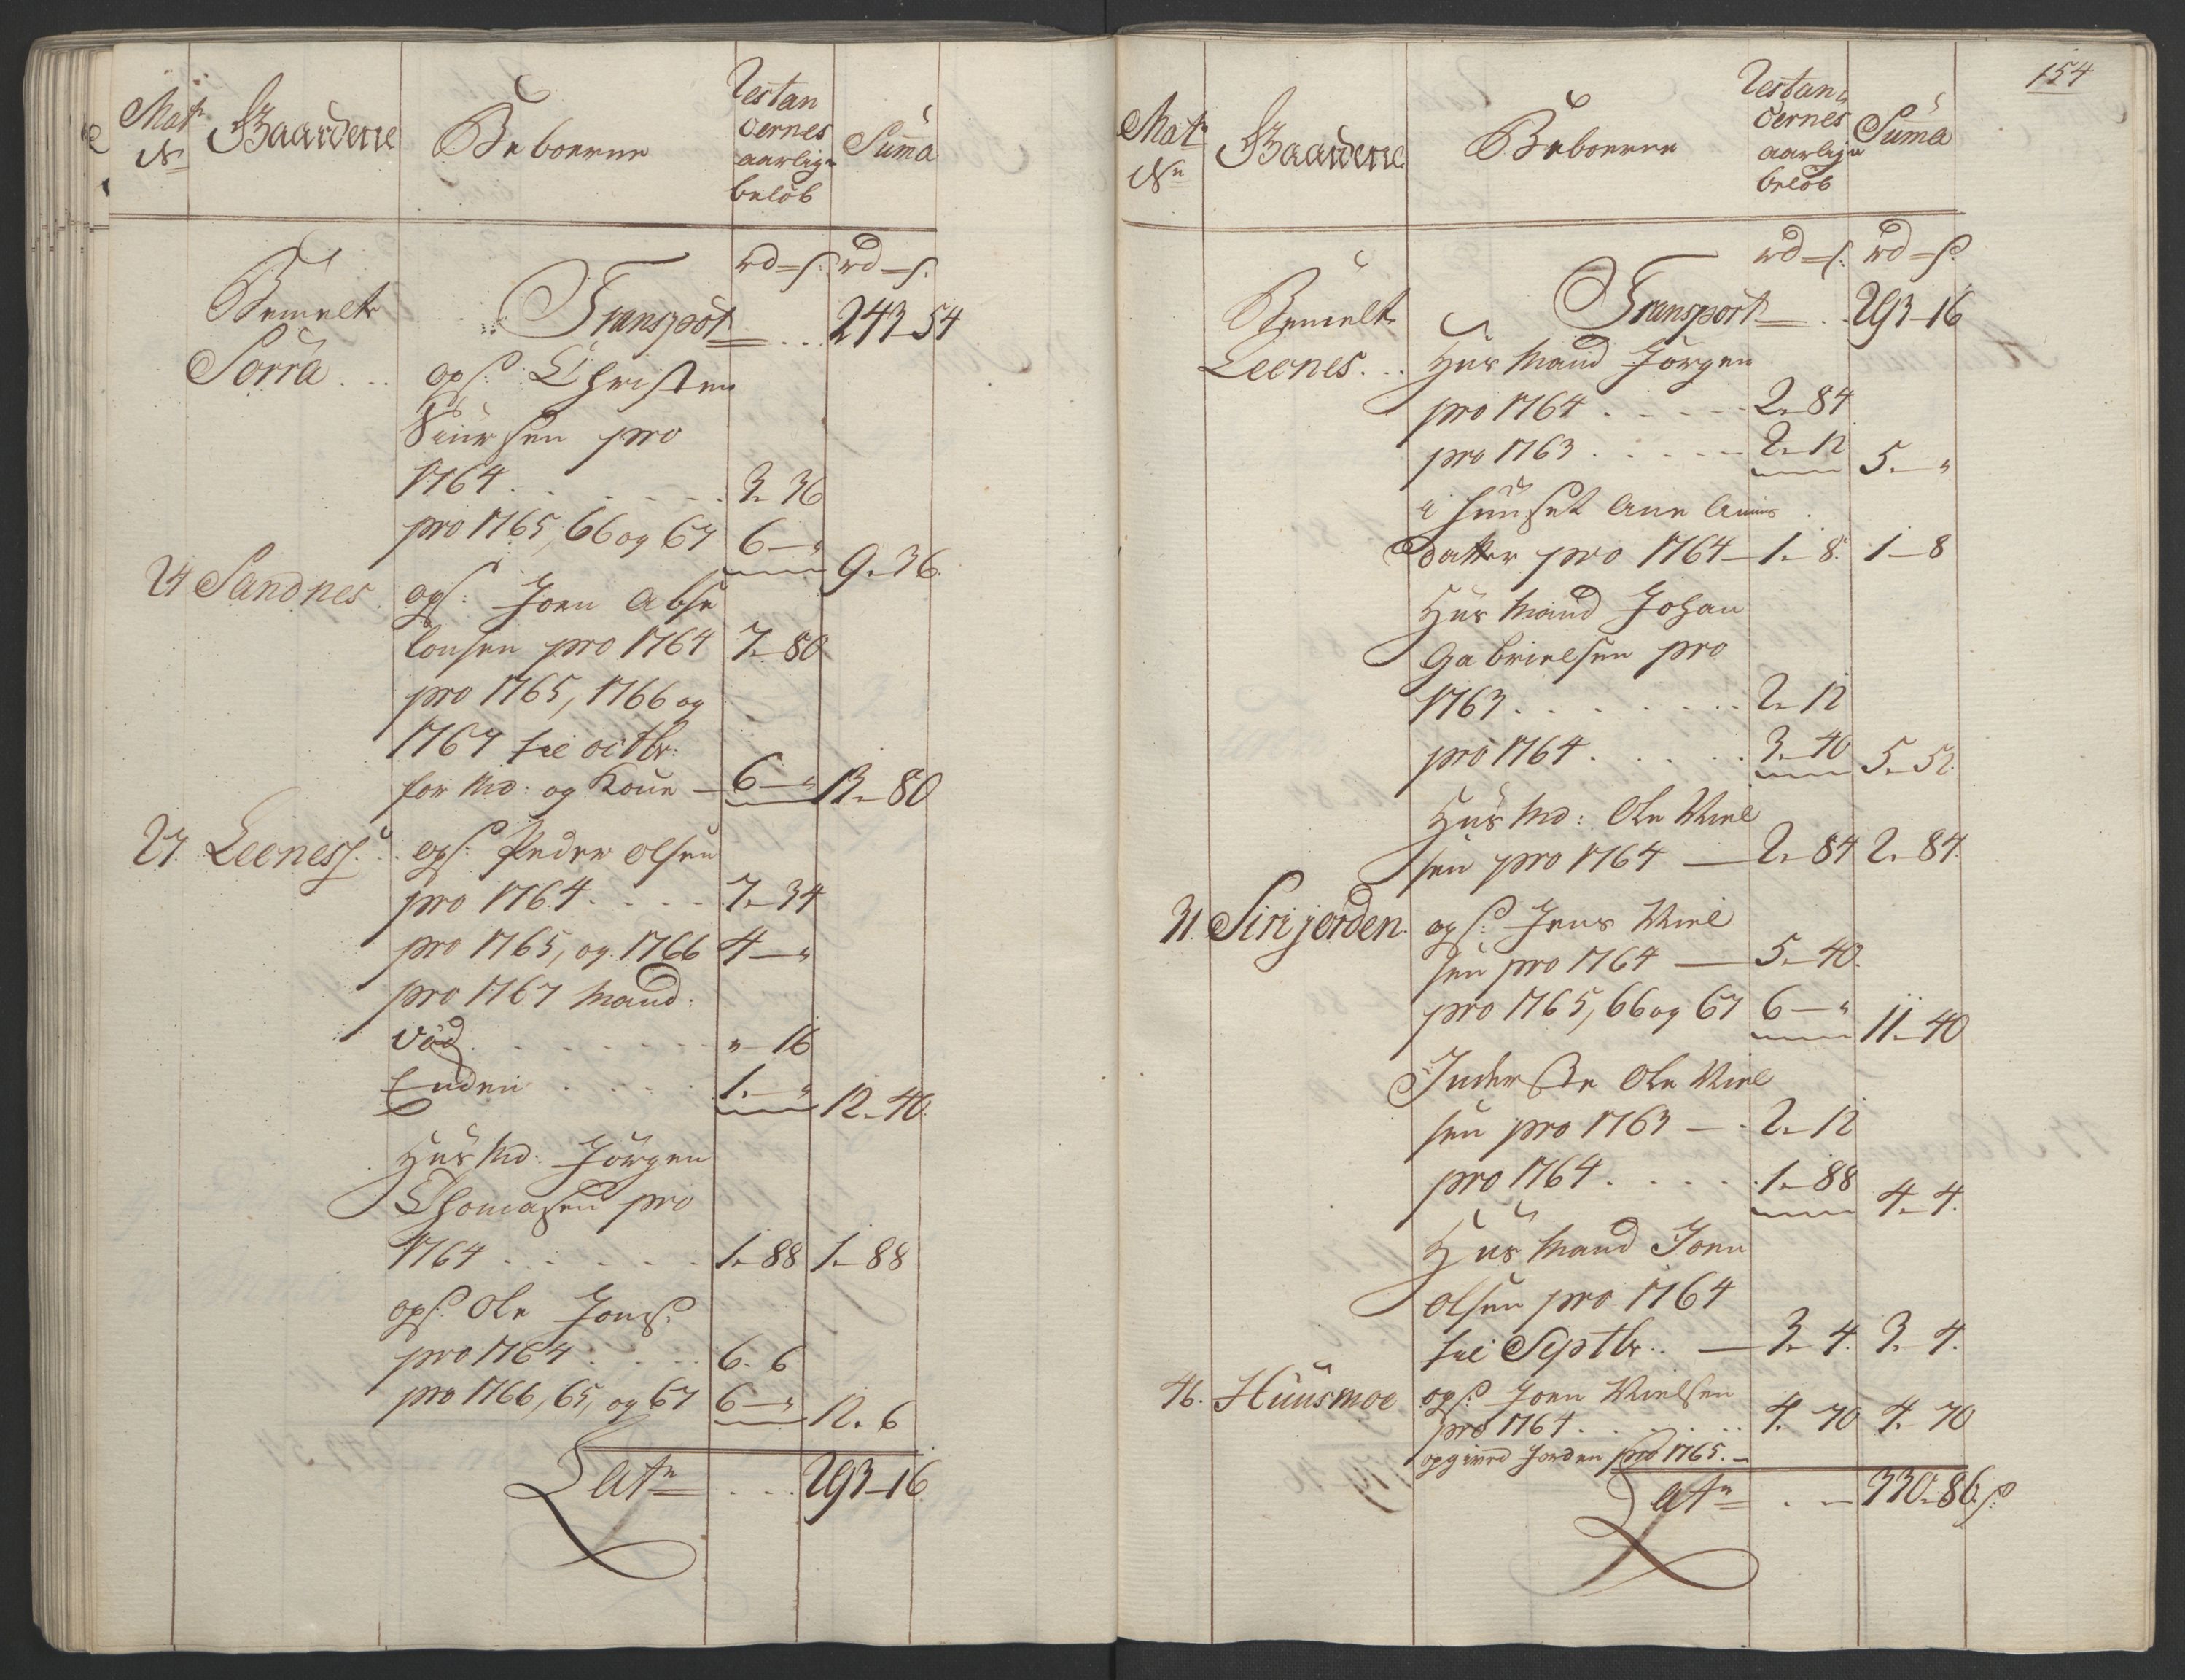 Mat: No
Gaardene
Beboerne
Restan
cernes
aarlige
beløb
Suma
rd - s: rd - s.
Bemelte
Sorra . .
Transport . . 243 - 54
ops: Christen
Siursen pro
1764 . . . . . . 3 - 36
pro 1765, 66 og 67 6 - " 9 - 36.
24 Sandnes . ops: Joen Abse
lonsen pro 1764 7 - 80
pro 1765, 1766 og
1767 til octbr:
for Md: og Kone - 6 - " 13 - 80
27. Leeness. . . ops: Peder Olsen
pro 1764 . . . . 7 - 34
pro 1765, og 1766 4 - "
pro 1767 Mand:
död . . . . . . . " - 16
Enden . . . . . 1. - " 12 - 40.
Huus Md: Jörgen
Thomasen pro
1764 . . . . . . 1 - 88 1 - 88
ops: Ole Jons:
pro 1764 . . . . 6. 6
pro 1766, 65, og 67 6 - " 12. 6
Late . . . 293 - 16.
154
Mat: No
Gaardene
Beboerne
Restan
cernes
aarlige
beløb
Suma
rd - s: rd - s:
Bemelte
Leenes. . .
Transport . . 293 - 16
Huus Mand Jörgen
pro 1764 . . . . . 2 - 84
pro 1763 . . . . . 2 - 12 5 - "
i Huuset Ane
datter pro 1764 - 1 - 8. 1 - 8
Huus Mand Johan
Gabrielsen pro
1763 . . . . . . . 2 - 12
pro 1764 . . . . . 3 - 40 5 - 52.
Huus Md: Ole Niel
sen pro 1764 — 2 - 84 2. 84.
31. Sirijorden. ops: Jens Niel
sen pro 1764 — 5 - 40.
pro 1765, 66 og 67 6 - " 11 - 40
Inderste Ole Niel
sen pro 1763 - . 2 - 12
pro 1764 . . . . . 1 - 88 4 - 4.
Huus Mand Joen
Olsen pro 1764
til Septbr: . — 3 - 4. 3 - 4.
46. Huusmoe ops: Joen Nielsen
pro 1764 . . . . . . 4. 70 4 - 70
opgived Jorden pro 1765. -
Late . - 330 - 86 s: